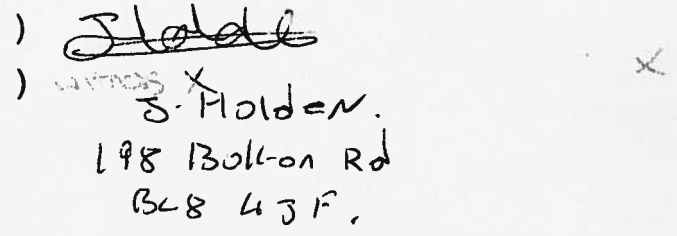 ) J Holde
) WITNESS X X
J. HOldeN.
198 Bolton Rd
BL8 4JF.